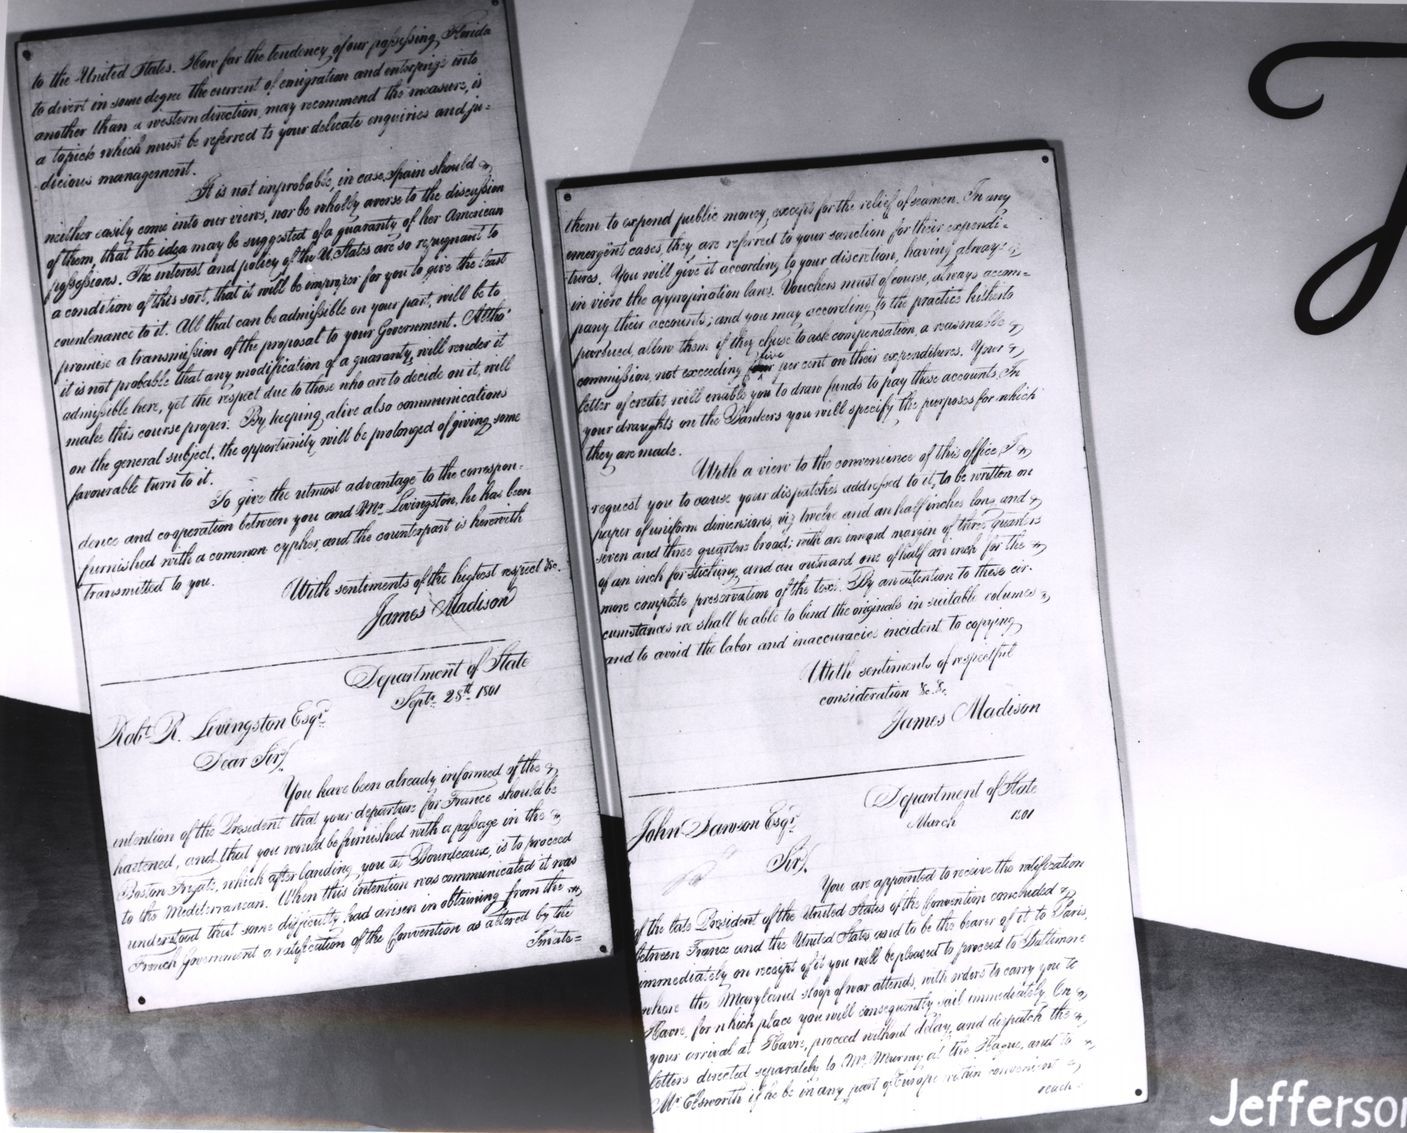 to the United States. How far the tendency of our possessing Florida
to divert in some degree the current of emigration and enterprize into
another than a western direction, may recommend the measure, is
a topick which must be referred to your delicate enquiries and ju-
dicious management.
It is not improbable, in case Spain should
neither easily come into our views, nor be wholly averse to the discussion
of them, that the idea may be suggested of a guaranty of her American
possessions. The interest and policy of the U. States are so repugnant to
a condition of this sort, that it will be improper for you to give the least
countenance to it. All that can be admissible on your part, will be to
promise a transmission of the proposal to your Government. Altho'
it is not probable that any modification of a guaranty, will render it
admissible here, yet the respect due to those who are to decide on it, will
make this course proper. By keeping alive also communications
on the general subject, the opportunity will be prolonged of giving some
favourable turn to it.
To give the utmost advantage to the correspon-
dence and cooperation between you and Mr. Livingston, he has been
furnished with a common cypher, and the counterpart is herewith
transmitted to you.
With sentiments of the highest respect &c.
James Madison
Department of State
Septr. 28th 1801
Robt. R. Livingston Esqr.
Dear Sir,
You have been already informed of the
intention of the President that your departure for France should be
hastened, and that you would be furnished with a passage in the
Boston Frigate, which after landing you at Bourdeaux, is to proceed
to the Mediterranean. When this intention was communicated it was
understood that some difficulty had arisen in obtaining from the
French Government a ratification of the Convention as altered by the
Senate=
them to expend public money, except for the relief of seamen. In any
emergent cases, they are referred to your sanction for their expendi-
tures. You will give it according to your discretion, having always
in view the appropriation laws. Vouchers must of course, always accom-
pany their accounts; and you may according to the practice hitherto
pursued, allow them if they chuse to ask compensation, a reasonable
commission, not exceeding five per cent on their expenditures. Your
letter of credit will enable you to draw funds to pay these accounts. In
your draughts on the Bankers you will specify the purposes for which
they are made.
With a view to the convenience of this office, I
request you to cause your dispatches addressed to it, to be written on
paper of uniform dimensions, viz twelve and an half inches long and
seven and three quarters broad; with an inward margin of three quarters
of an inch for stiching, and an outward one of half an inch for the
more complete preservation of the text. By an attention to these cir-
cumstances we shall be able to bind the originals in suitable volumes
and to avoid the labor and inaccuracies incident to copying
With sentiments of respectful
consideration &c. &c.
James Madison
Department of State
March 1801
John Dawson Esqr.
Sir,
You are appointed to receive the ratification
of the late President of the United States of the Convention concluded
between France and the United States and to be the bearer of it to Paris,
immediately on receipt of it you will be pleased to proceed to Baltimore
where the Maryland sloop of war attends, with orders to carry you to
Havre, for which place you will consequently sail immediately. On
your arrival at Havre, proceed without delay, and dispatch the
letters directed separately to Mr. Murray at the Hague, and to
Mr. Elsworth if he be in any part of Europe within convenient
reach-
Jefferson